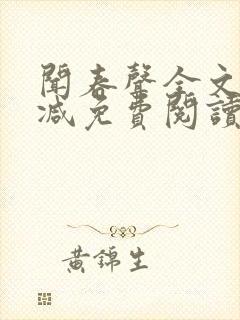 聞春聲全文
減免費閱讀
黃錦生